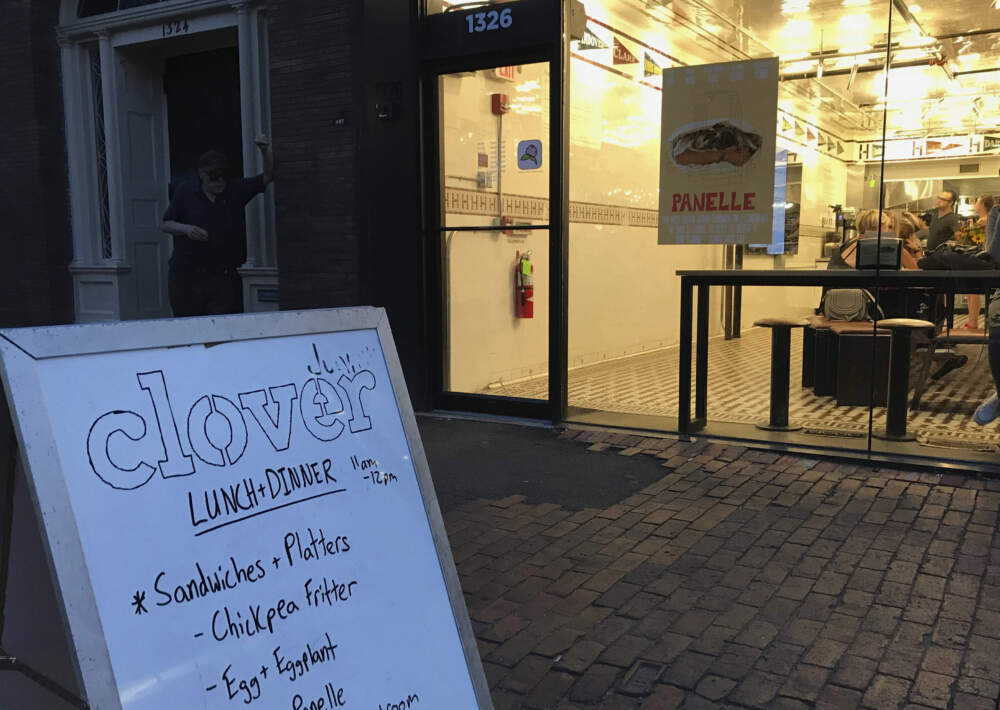 1324
1326
EXIT
CLARK
PANELLE
clover
LUNCH + DINNER
11am
-12pm
* Sandwiches + Platters
- Chickpea Fritter
- Egg + Eggplant
Panelle